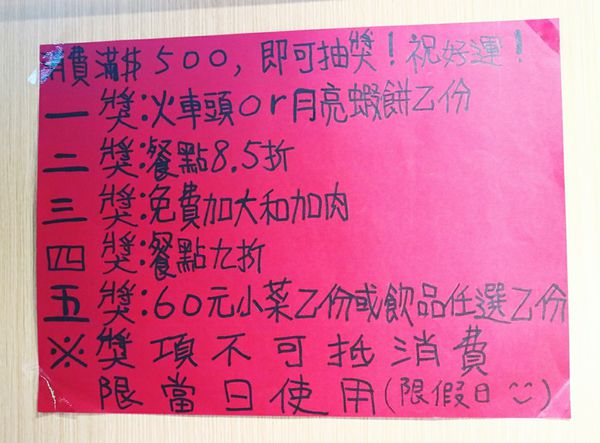 消費滿$500，即可抽獎！祝好運！
一獎：火車頭or月亮蝦餅乙份
二獎：餐點8.5折
三獎：免費加大和加肉
四獎：餐點九折
五獎：60元小菜乙份或飲品任選乙份
※獎項不可抵消費
限當日使用（限假日 ツ）